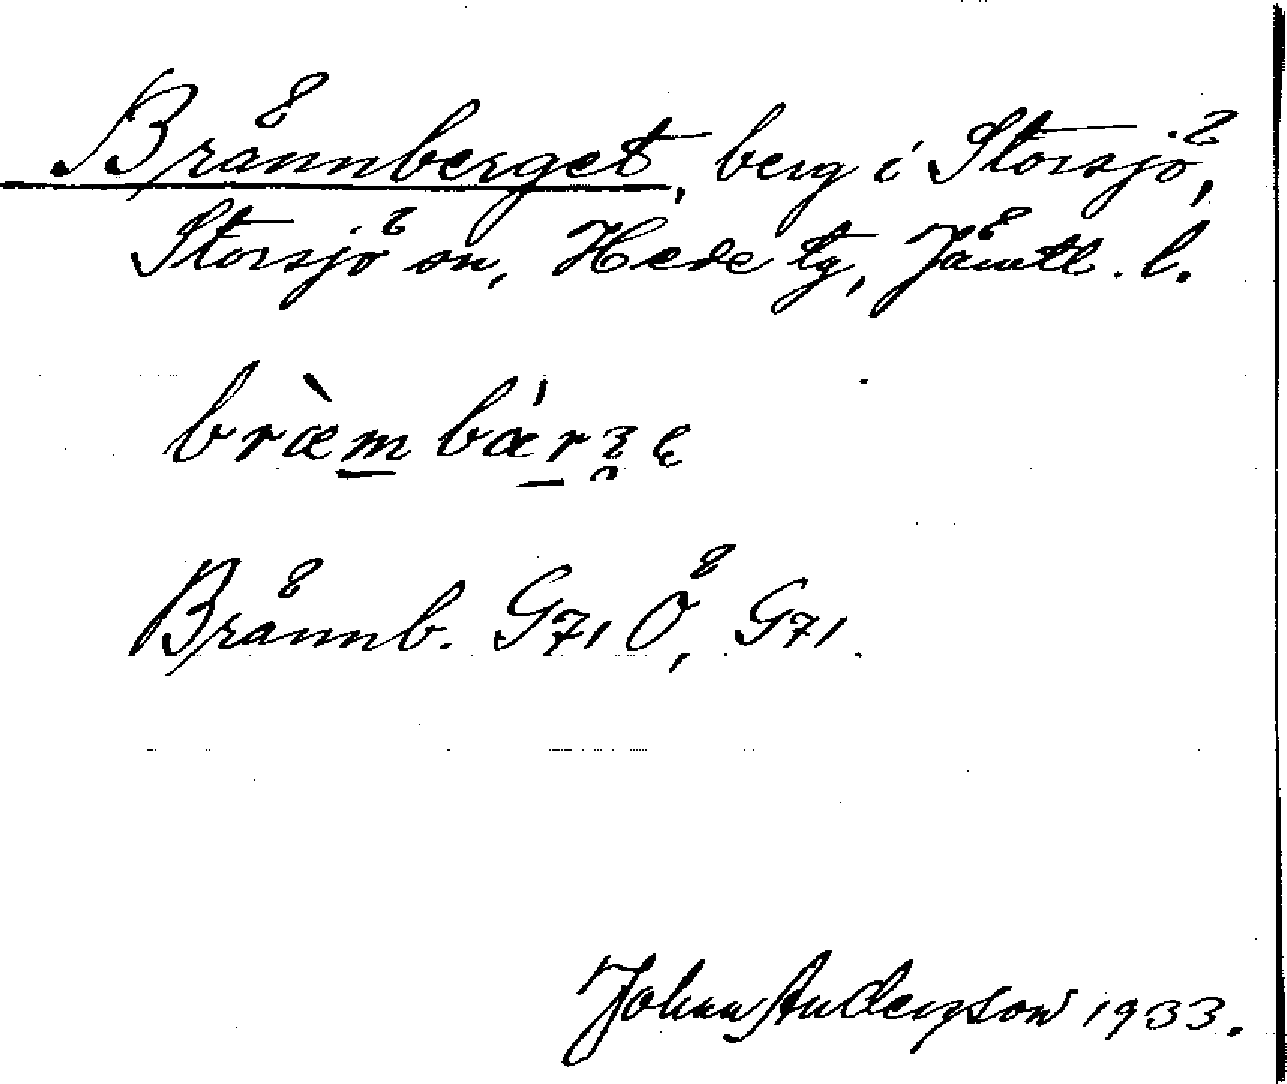 Brännberget, berg i Storsjö,
Storsjö sn, Hede tg, Jämtl. l.
bræ̀m bǽrʒ̥ę
Brännb. G71 Ö, G71.
Johan Anderson 1933.